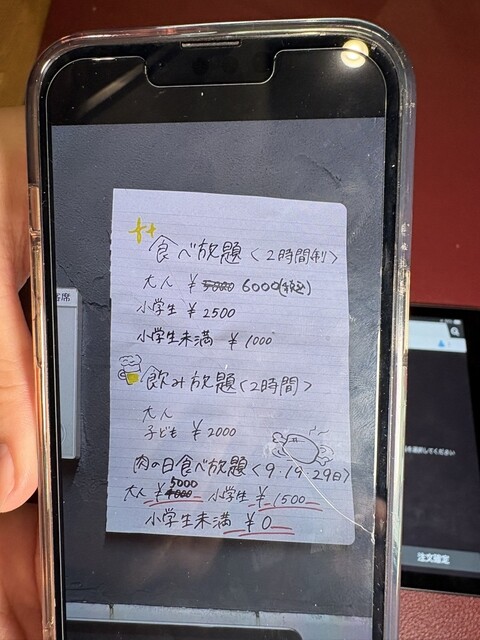 食べ放題〈2時間制〉
大人 ¥5000 6000(税込)
小学生 ¥2500
小学生未満 ¥1000
飲み放題〈2時間〉
大人
子ども ¥2000
肉の日食べ放題〈9・19・29日〉
5000
大人 ¥4000 小学生 ¥1500
小学生未満 ¥0
客席
を選択してください
注文確定